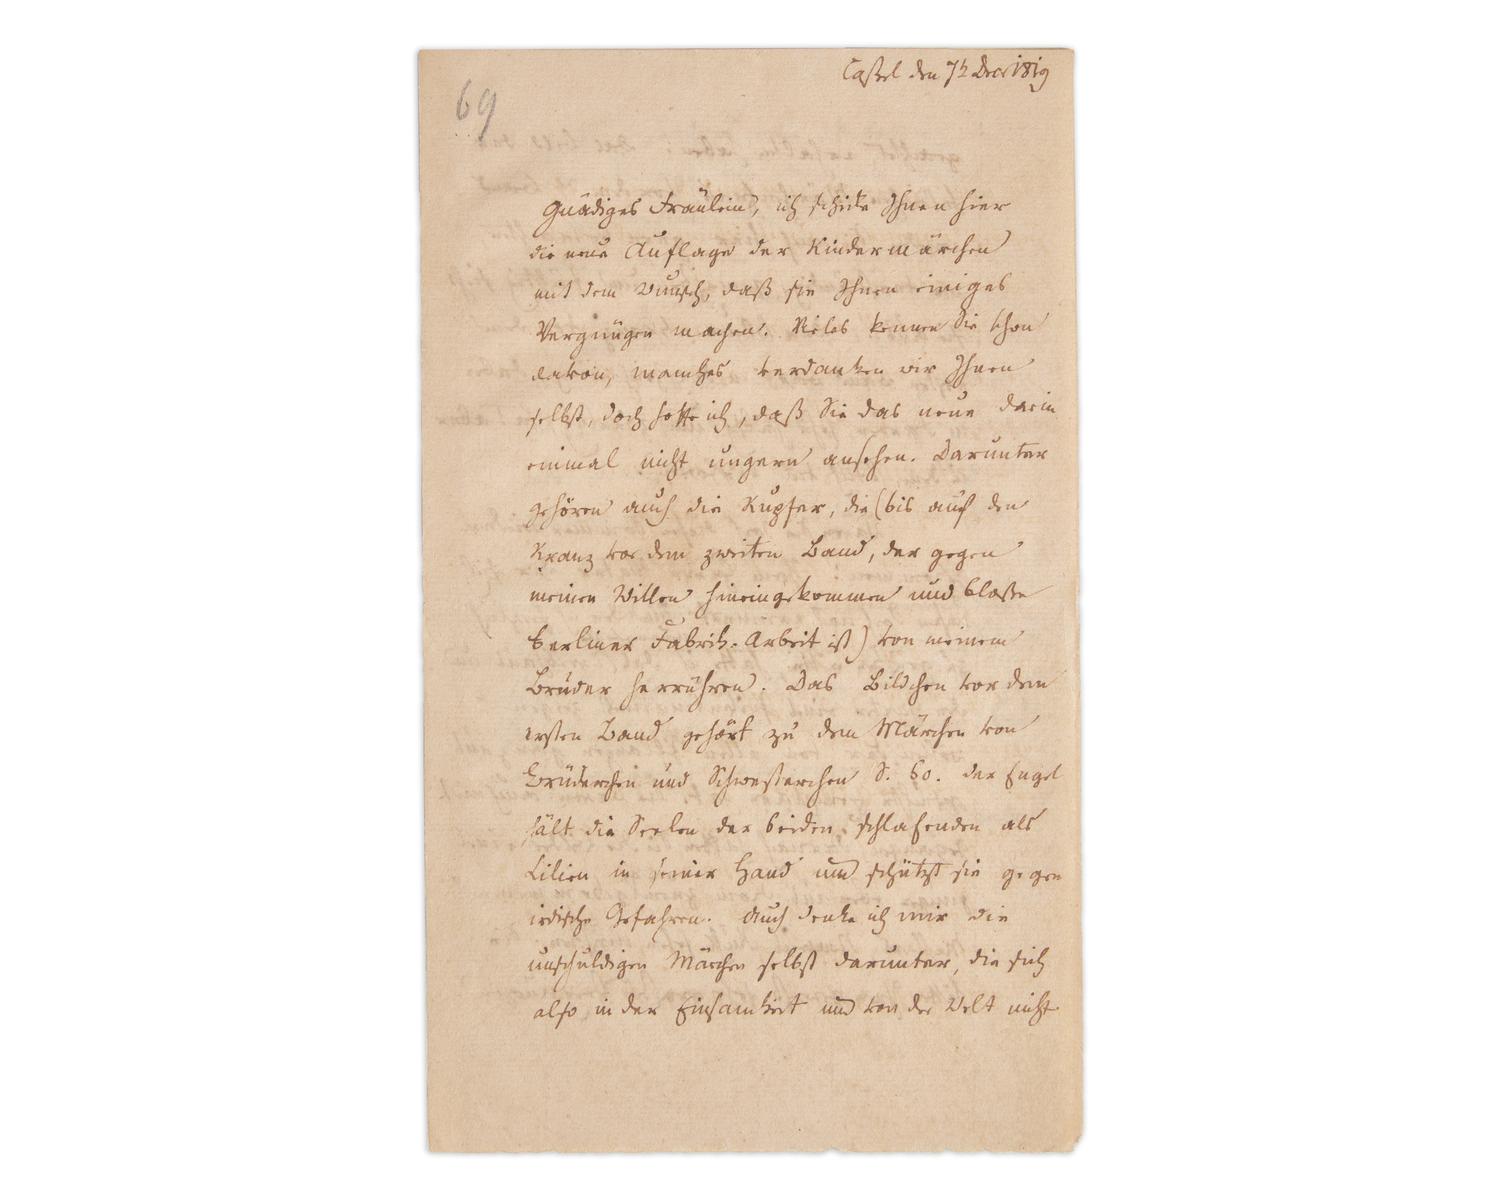 Cassel den 7t Decr 1819
69
Gnädiges Fräulein, ich schicke Ihnen hier
die neue Auflage der Kindermärchen
mit dem Wunsch, daß sie Ihnen einiges
Vergnügen machen. Vieles kennen Sie schon
davon, manches verdanken wir Ihnen
selbst, doch hoffe ich, daß Sie das neue darin
einmal nicht ungern ansehen. Darunter
gehören auch die Kupfer, die (bis auf den
Kranz vor dem zweiten Band, der gegen
meinen Willen hineingekommen und bloße
Berliner Fabrik-Arbeit ist) von meinem
Bruder herrühren. Das Bildchen vor dem
ersten Band gehört zu dem Märchen von
Brüderchen und Schwesterchen S. 60. der Engel
hält die Seelen der beiden schlafenden als
Lilien in seiner Hand und schützt sie gegen
irdische Gefahren. Auch denke ich mir die
unschuldigen Märchen selbst darunter, die sich
also in der Einsamkeit und von der Welt nicht